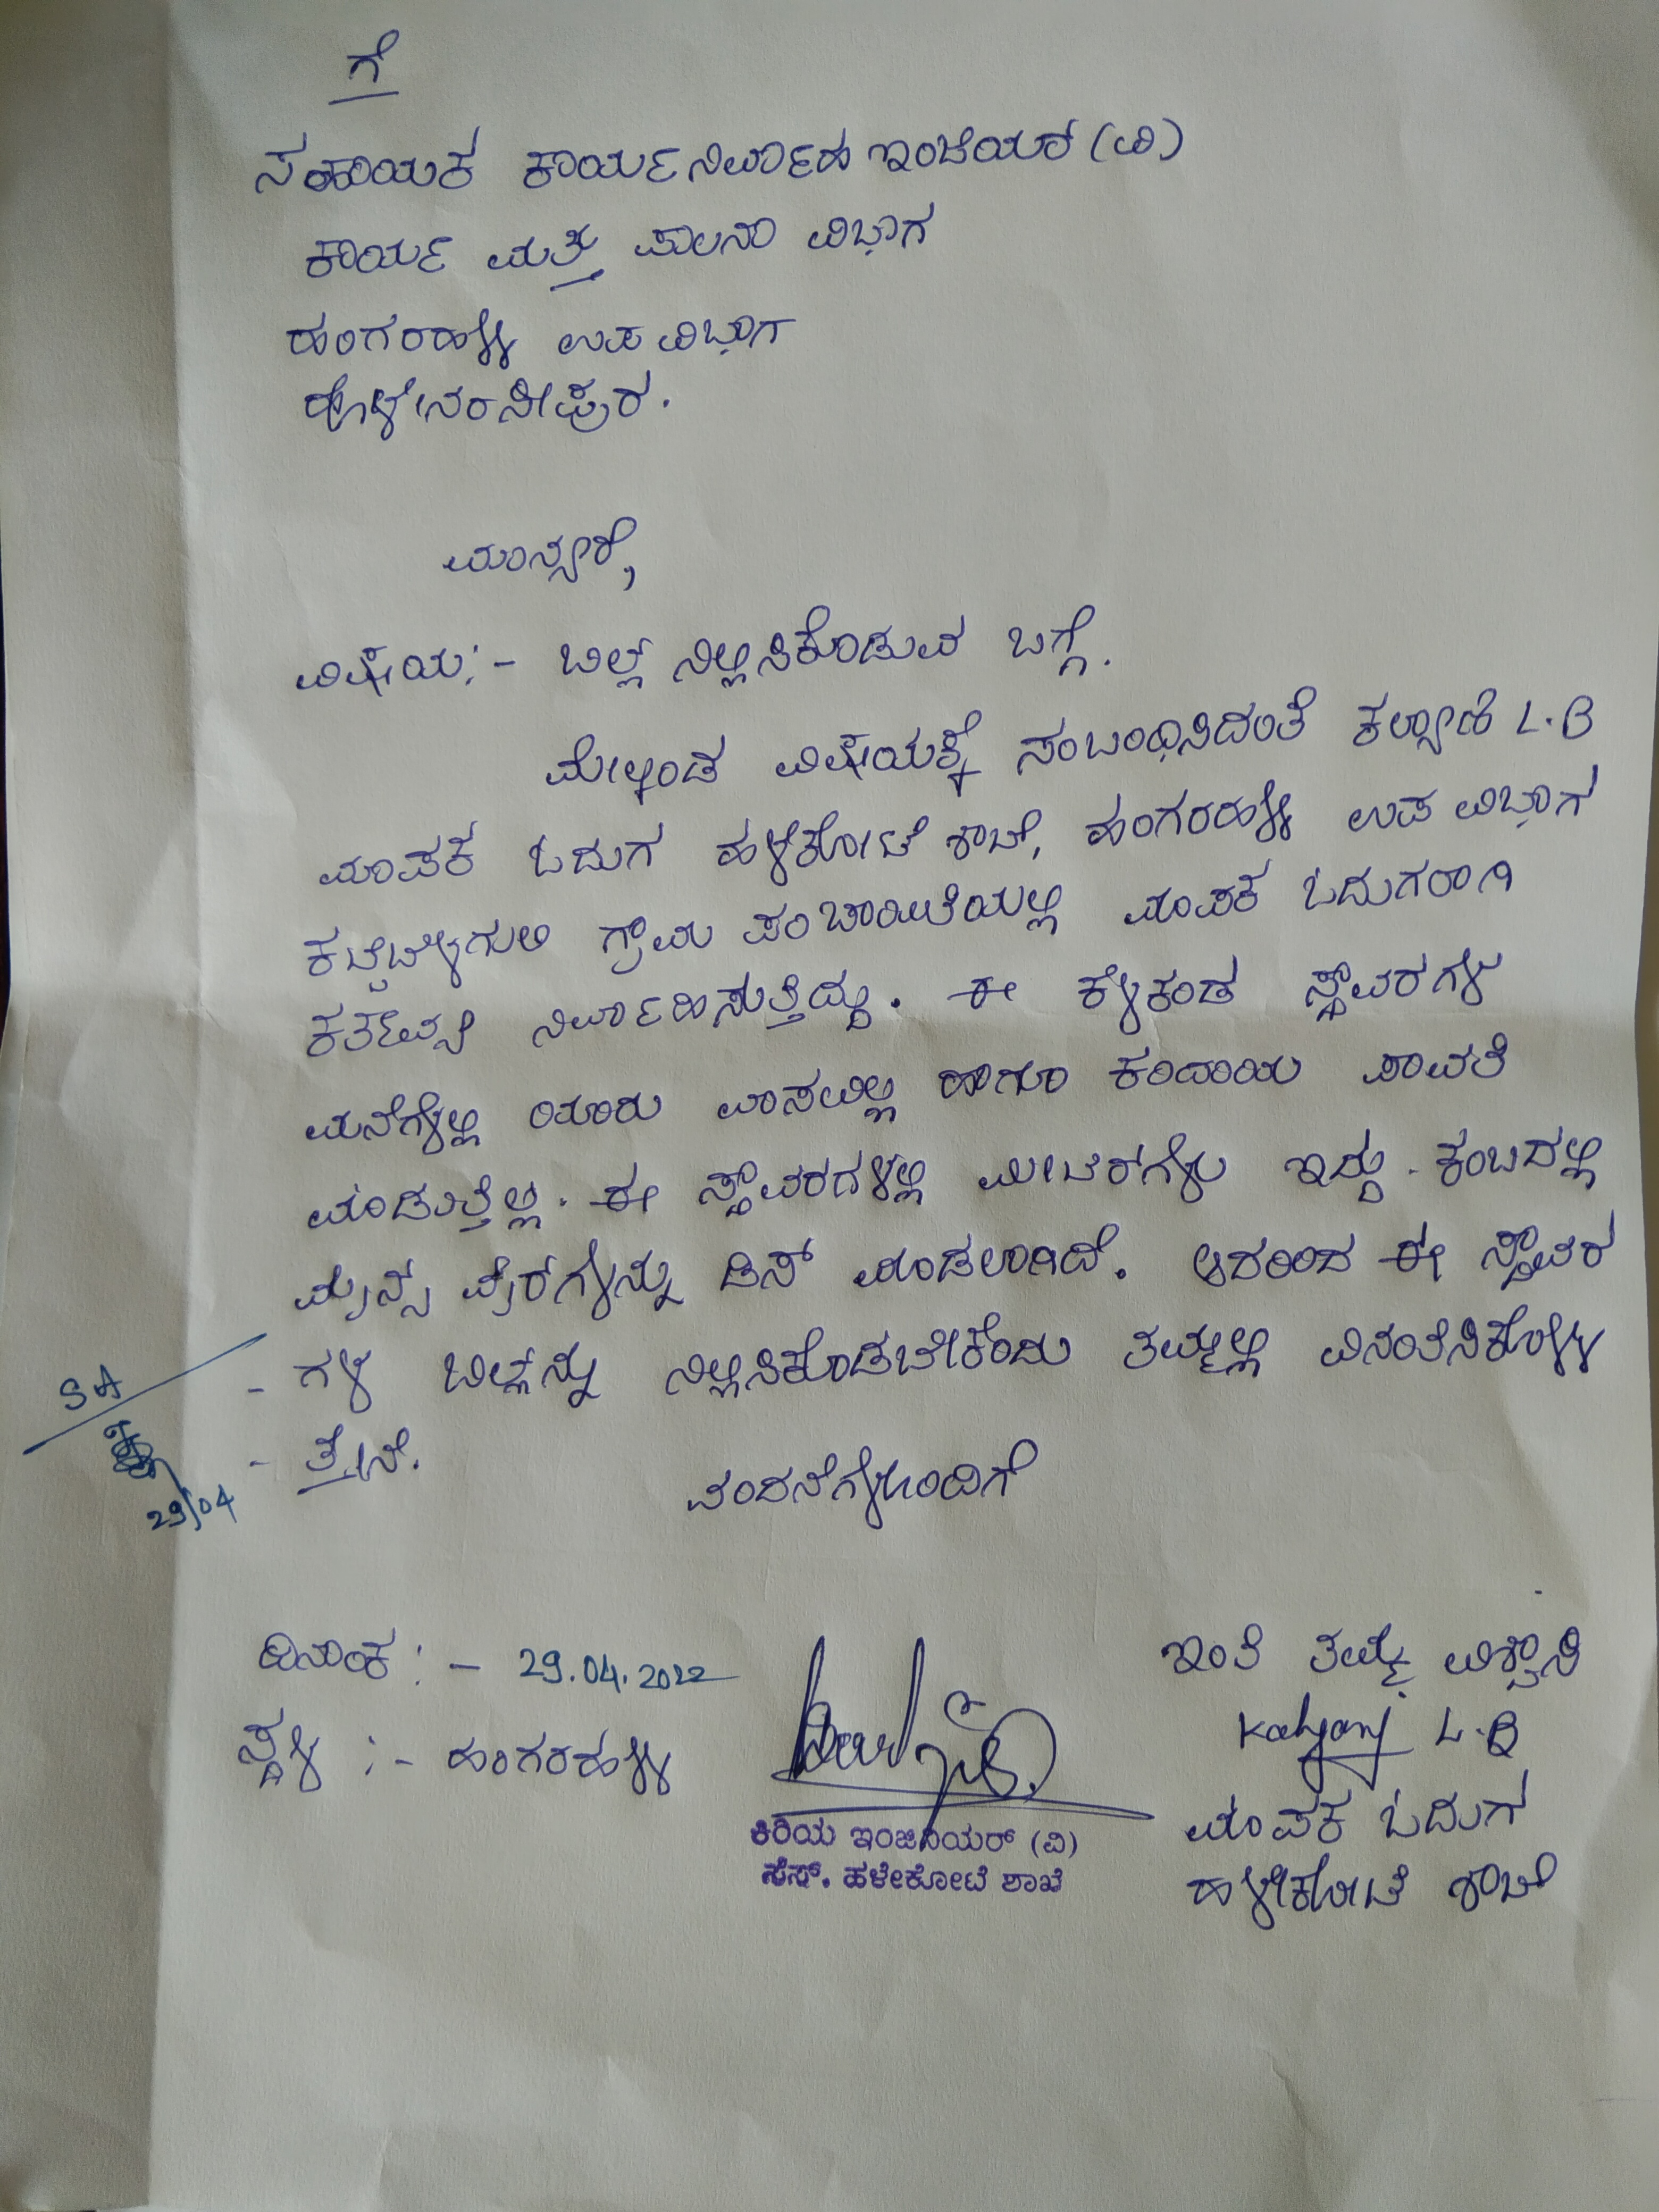 ಗೆ
ಸಹಾಯಕ ಕಾರ್ಯನಿರ್ವಾಹ ಇಂಜಿಯರ್ (ವಿ)
ಕಾರ್ಯ ಮತ್ತು ಪಾಲನಾ ವಿಭಾಗ
ಹಂಗರಹಳ್ಳಿ ಉಪ ವಿಭಾಗ
ಹೊಳೇನರಸೀಪುರ.
ಮಾನ್ಯರೆ,
ವಿಷಯ:- ಬಿಲ್ಲ್ ನಿಲ್ಲಿಸಿಕೊಡುವ ಬಗ್ಗೆ.
ಮೇಲ್ಕಂಡ ವಿಷಯಕ್ಕೆ ಸಂಬಂಧಿಸಿದಂತೆ ಕಲ್ಯಾಣಿ L.B
ಮಾಪಕ ಓದುಗ ಹಳೆಕೋಟೆ ಶಾಖೆ, ಹಂಗರಹಳ್ಳಿ ಉಪ ವಿಭಾಗ
ಗ್ರಾಮ ಪಂಚಾಯಿತಿಯಲ್ಲಿ ಮಾಪಕ ಓದುಗರಾಗಿ
ಕರ್ತವ್ಯ ನಿರ್ವಾಹಿಸುತ್ತಿದ್ದು. ಈ ಕೆಳಕಂಡ ಸ್ಥಾವರಗಳು
ಮನೆಗಳಲ್ಲಿ ಯಾರು ವಾಸವಿಲ್ಲ ಹಾಗೂ ಕಂದಾಯ ಪಾವತಿ
ಮಾಡುತ್ತಿಲ್ಲ. ಈ ಸ್ಥಾವರಗಳಲ್ಲಿ ಮೀಟರ್‌ಗಳು ಇದ್ದು. ಕಂಬದಲ್ಲಿ
ಮೈನ್ಸ್ ವೈರ್‌ಗಳನ್ನು ಡಿಸ್ ಮಾಡಲಾಗಿದೆ. ಆದರಿಂದ ಈ ಸ್ಥಾವರ
- ಗಳ ಬಿಲ್ಲನ್ನು ನಿಲ್ಲಿಸಿಕೊಡಬೇಕೆಂದು ತಮ್ಮಲ್ಲಿ ವಿನಂತಿಸಿಕೊಳ್ಳು
- ತ್ತೇನೆ.
SA
29/04
ವಂದನೆಗಳೊಂದಿಗೆ
ದಿನಾಂಕ :- 29.04.2022
ಸ್ಥಳ :- ಹಂಗರಹಳ್ಳಿ
ಕಿರಿಯ ಇಂಜಿನಿಯರ್ (ವಿ)
ಸೆಸ್. ಹಳೇಕೋಟೆ ಶಾಖೆ
ಇಂತಿ ತಮ್ಮ ವಿಶ್ವಾಸಿ
Kalyani L.B
ಮಾಪಕ ಓದುಗ
ಹಳೇಕೋಟೆ ಶಾಖೆ